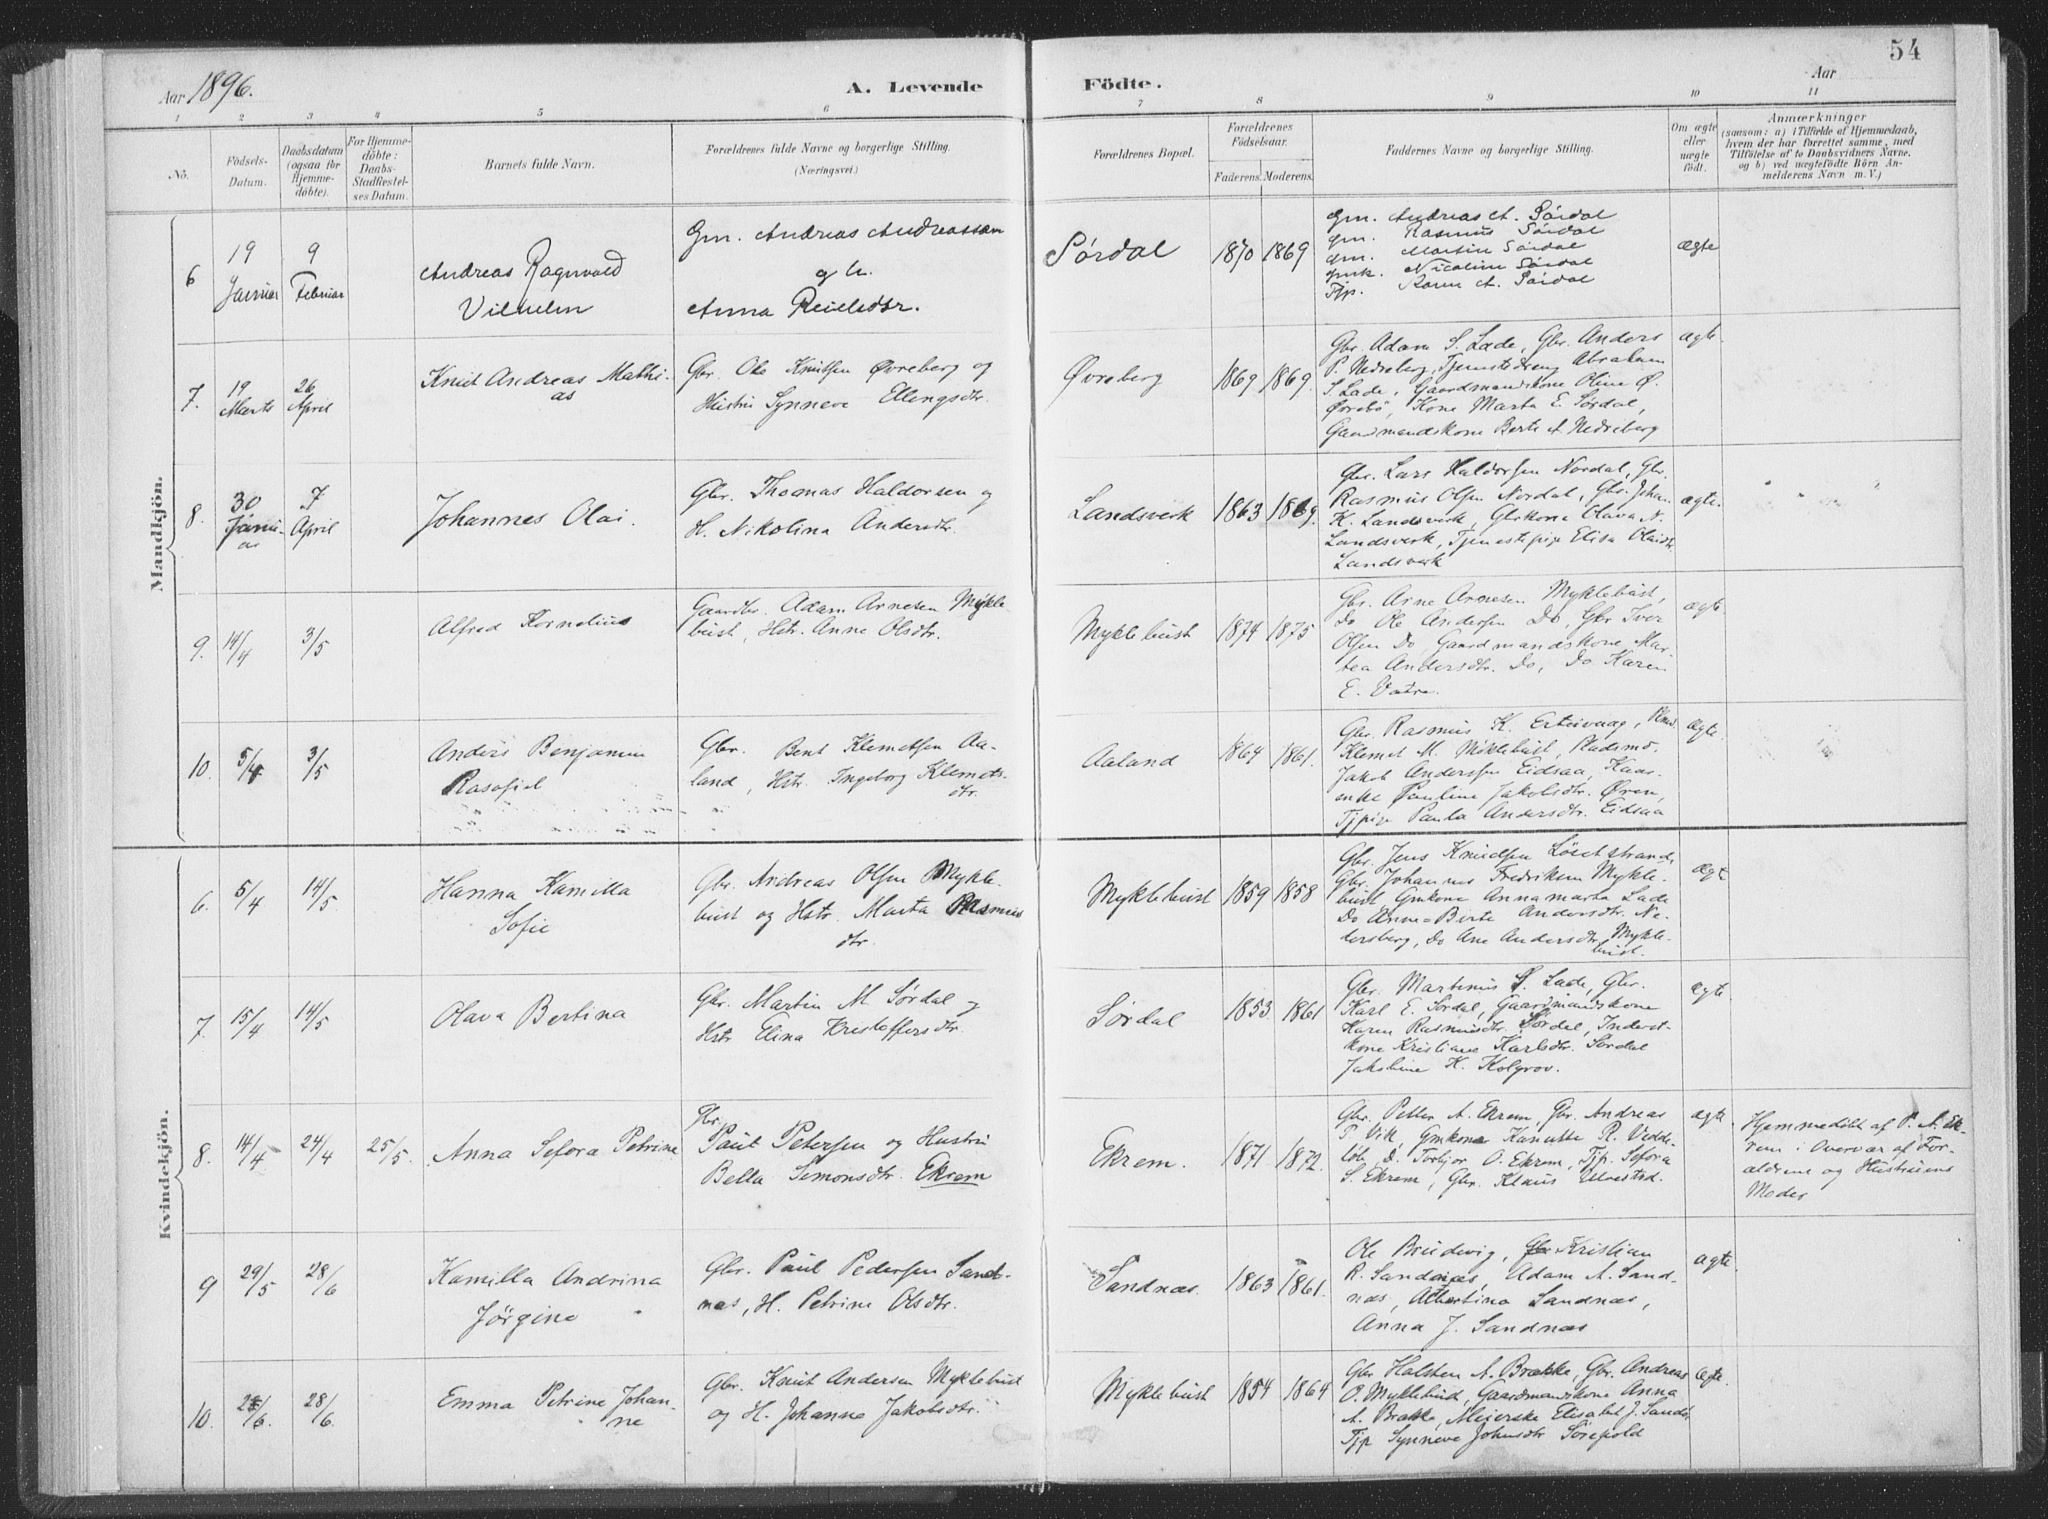 54
Aar 1896.
A. Levende Födte.
Aar
1 2 3 4 5 6 7 8 9 10 11
No.
Födsels-
Datum.
Daabsdatum
(ogsaa for
Hjemme-
döbte).
For Hjemme-
döbte:
Daabs-
Stadfæstel-
ses Datum.
Barnets fulde Navn.
Forældrenes fulde Navne og borgerlige Stilling.
(Næringsvei.)
Forældrenes Bopæl.
Forældrenes
Födselsaar.
Faderens. Moderens.
Faddernes Navne og borgerlige Stilling.
Om ægte
eller
uægte
födt.
Anmærkninger
(saasom: a) i Tilfælde af Hjemmedaab,
hvem der har forrettet samme, med
Tilföielse af to Daabsvidners Navne.
og b) ved uægtefödte Börn An-
melderens Navn m. V.)
Mandkjön.
6
19
Januar
9
Februar
Andreas Ragnvald
Vilhelm
Gm. Andreas Andreassen
og h.
Anna
Sørdal
1870 1869
Gm. Andreas A. Sørdal
Gm. Rasmus Sørdal
Gm. Martin Sørdal
Gmk. Nicoline Sørdal
Tjp. Karen A. Sørdal
ægte
7.
19
Marts
26
April
Knut Andreas Mathi-
as
Gbr. Ole Knutsen Øvreberg og
Hustru Synneve Ellingsdtr.
Øvreberg
1869 1869.
Gbr. Adam S. Lade, Gbr. Anders
P. Nedreberg, Tjenestedreng Abraham
S. Lade, Gaardmandskone Oline Ø.
Øvrebø, Kone Marta E. Sørdal,
Gaardmandskone Berte A Nedreberg
ægte
8.
30
Janu-
ar
7
April
Johannes Olai.
Gbr. Thomas Haldorsen og
H. Nikolina Andersdtr.
Landsverk
1863 1869.
Gbr. Lars Haldorsen Nordal, Gbr.
Rasmus Olsen Nordal, Gbr. Johan
K. Landsverk, Gbrkone Olava N.
Landsverk, Tjenestepige Elisa Olaidtr.
Landsverk
ægte.
9.
14/4
3/5
Alfred Kornelius
Gaardbr. Adam Arnesen Mykle-
bust, Hstr. Anne Olsdtr.
Myklebust
1874 1875
Gbr. Arne Arnesen Myklebust,
Do Ole Andersen Do, Gbr Iver
Olsen Do, Gaardmandskone Mar-
tea Andersdtr. Do, Do Karen
E. Vatne.
ægte
10.
5/4
3/5
Anders Benjamin
Rasafiel
Gbr. Bent Klemetsen Aa-
land, Hstr. Ingeborg Klemets-
dtr.
Aaland
1864 1861.
Gbr. Rasmus K. Ertesvaag,
Klemet M. Myklebust, Pladsmd.
Jakob Anderssen Eidsaa, Kaar-
enke Pauline Jakobsdtr. Øren,
Tjpige Paula Andersdtr. Eidsaa
ægte.
Kvindekjön.
6.
5/4
14/5
Hanna Kamilla
Sofie
Gbr. Andreas Olsen Mykle-
bust og Hstr. Marta Rasmus
dtr.
Myklebust
1859 1858
Gbr. Jens Knudsen Løsetstrand,
Gbr. Johannes Fredriksen Mykle-
bust Gmkone Annamarta Lade
Do Anne-Birte Andersdtr. Ne-
dersberg, Do Ane Andersdtr. Mykle-
bust.
ægt
7.
15/4
14/5
Olava Bertina
Gbr. Martin M. Sørdal og
Hstr Elina Kristoffersdtr.
Sørdal
1853 1861
Gbr. Martinus S. Lade, Gbr.
Karl E. Sørdal, Gaardmandskone
Karen Rasmusdtr. Sørdal, Inderst-
kone Kristiane Karlsdtr. Sørdal
Jakobine K. Kolgrov.
ægte
8.
14/4
24/4
25/5.
Anna Sefora Petrine
Gbr.
Paul Petersen og Hustru
Bella Simonsdtr. Ekrem
Ekrem.
1871 1872.
Gbr. Petter A. Ekrem, Gbr. Andreas
P Vik, Gmkone Kanutte R. Vedde-
Torbjør O. Ekrem, Tjp. Sefora
S. Ekrem, Gbr. Klaus
ægte
Hjemmedöbt af P. A. Ek-
rem i Overvær af For-
ældrene og Hustruens
Moder
9
29/5
28/6
Kamilla Andrina
Jørgine
Gbr. Paul Pedersen Sand-
næs, H. Petrine Olsdtr.
Sandnæs
1863 1861.
Ole Brudevig, Gbr Kristian
R. Sandnæs, Adam A. Sand-
næs, Albertina Sandnæs,
Anna J. Sandnæs
ægte.
10.
28/6
Emma Petrine Johan-
ne
Gbr. Knut Andersen Myklebust
og H. Johanne Jakobsdtr.
Myklebust
1854 1864
Gbr Halsten A. Brække, Gbr. Andreas
O. Myklebust, Gaardmandskone Anna
A. Brække, Meierske Elisabet J. Sands,
Tjp Synneve Johnsdtr
ægte.